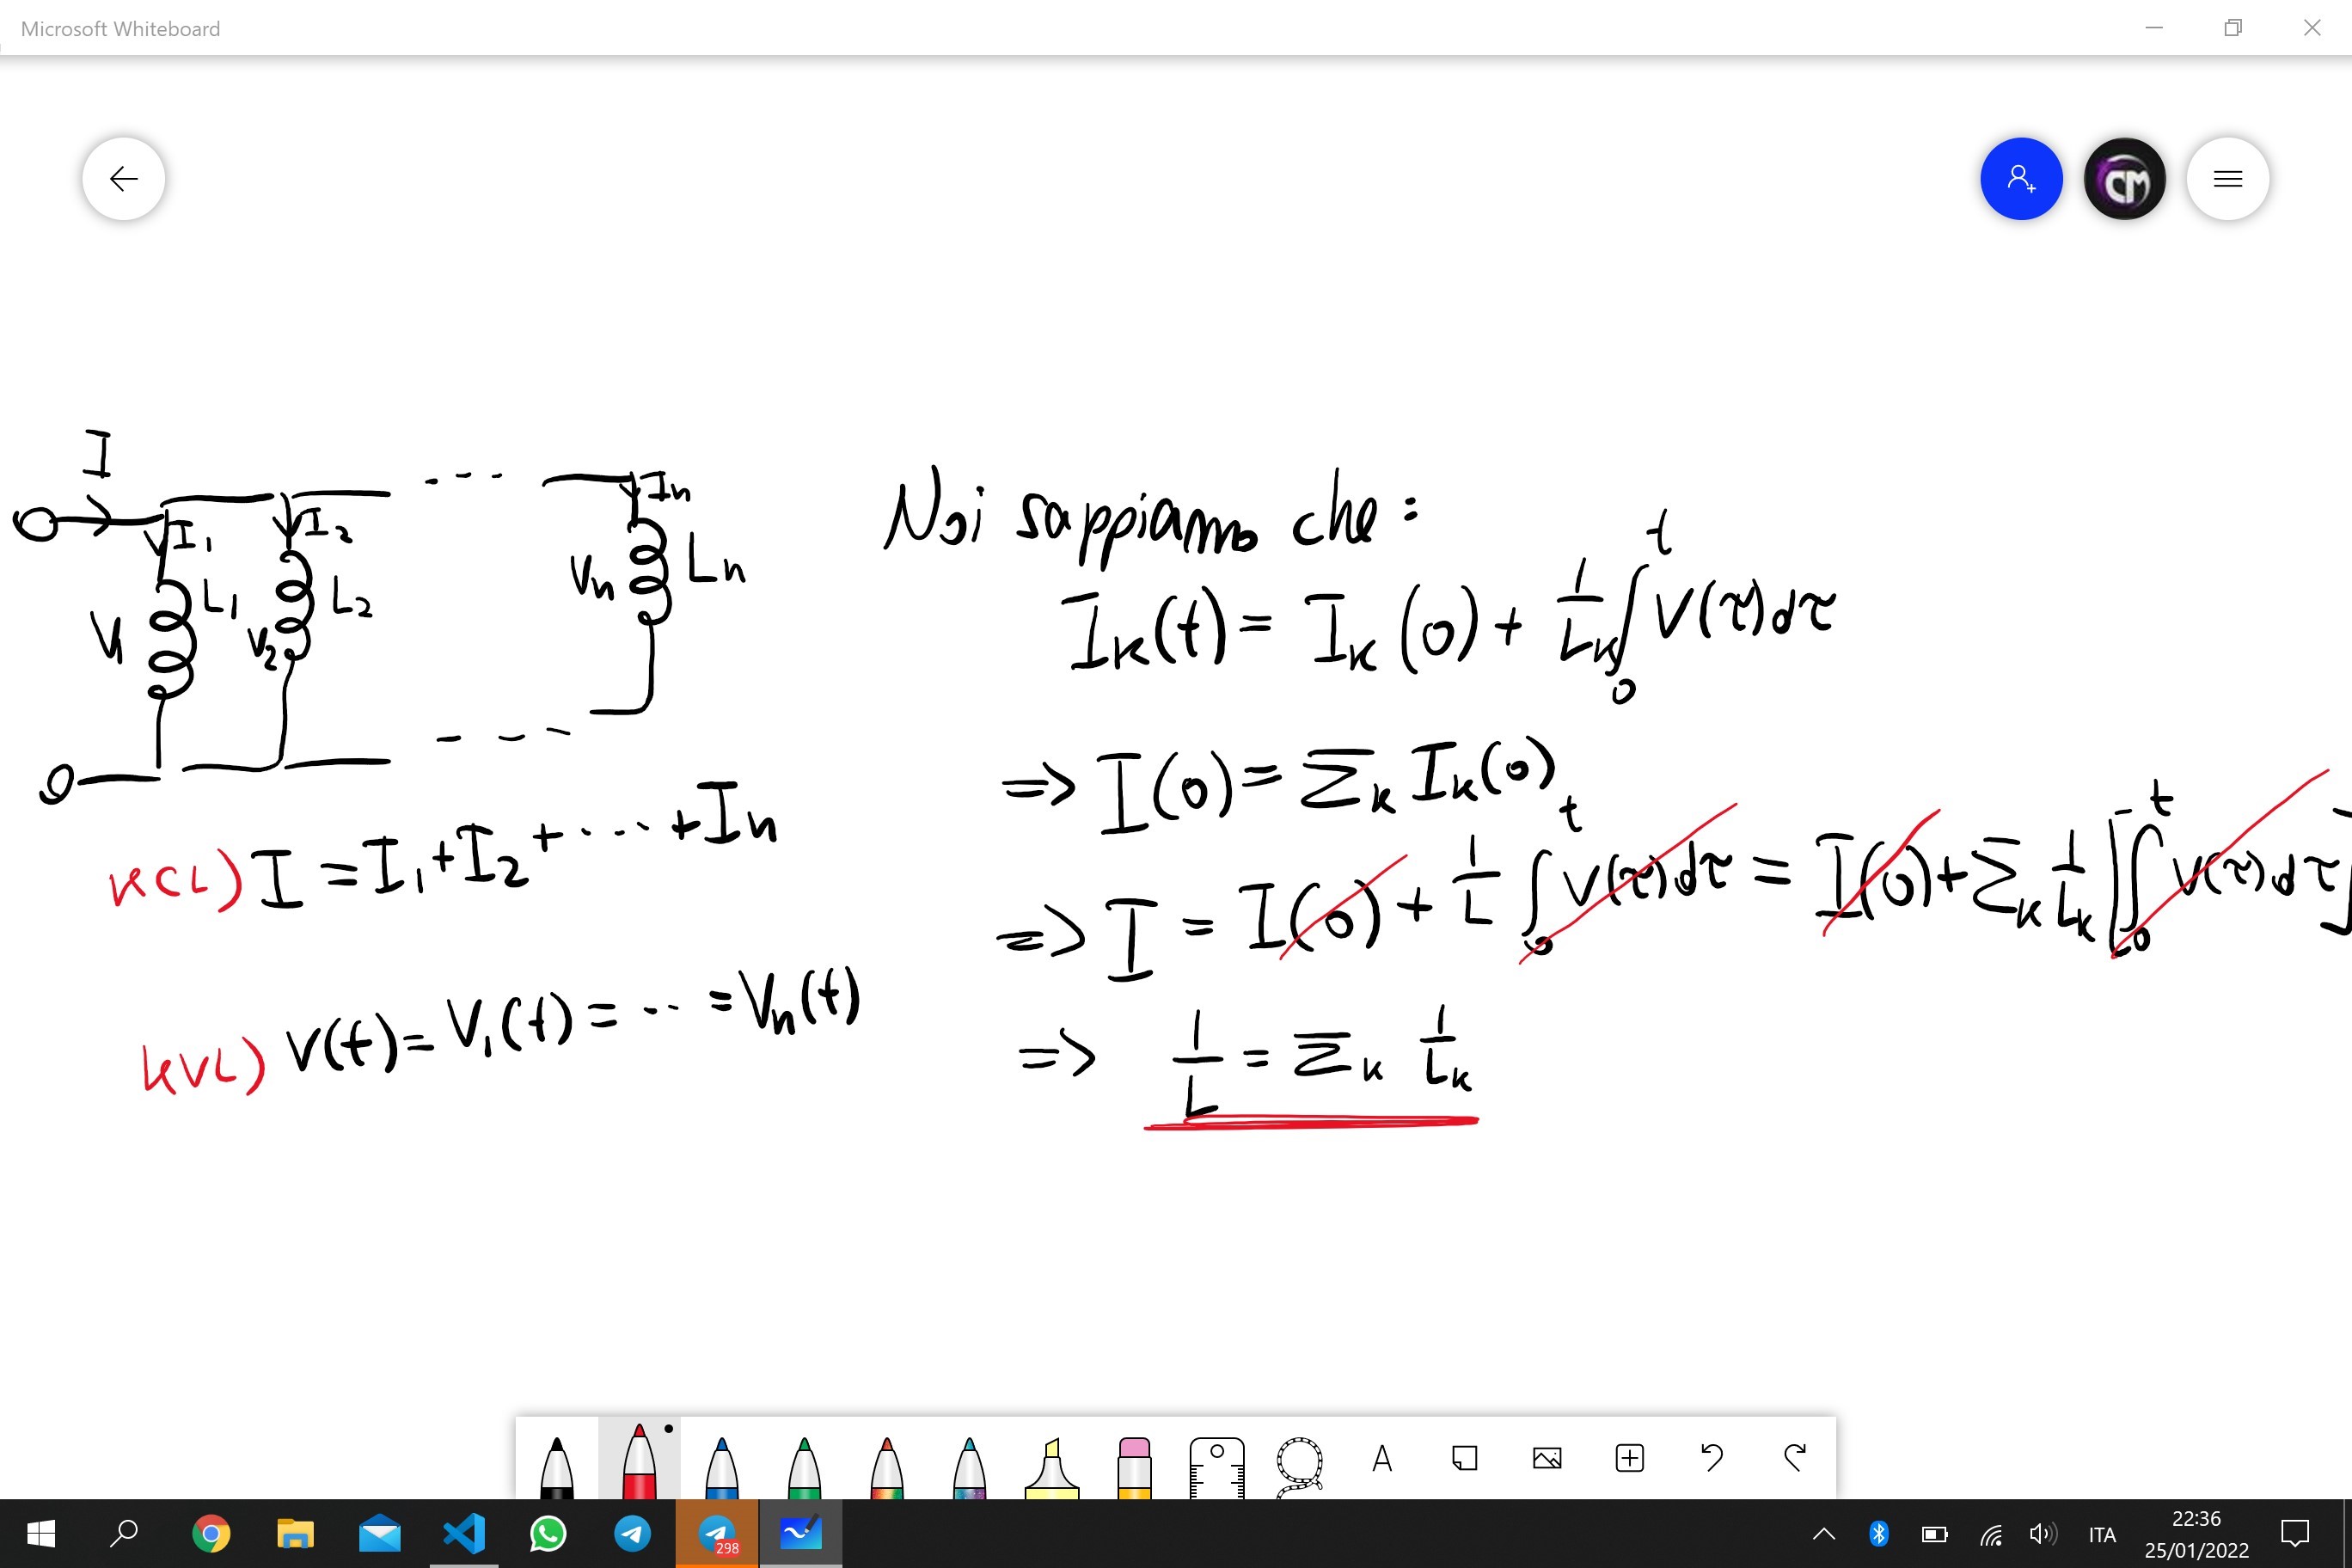 Microsoft Whiteboard
CM
I
I₁
I₂
In
V₁
L₁
V₂
L₂
Vn
Ln
KCL) I = I₁+I₂+...+In
KVL) V(t)=V₁(t)=...=Vn(t)
Noi sappiamo che:
Iₖ(t)= Iₖ(0)+ 1/Lₖ ∫₀ᵗ V(τ)dτ
=> I(0)= Σₖ Iₖ(0)
=> I = I(0) + 1/L ∫₀ᵗ V(τ)dτ = I(0)+Σₖ 1/Lₖ [∫₀ᵗ V(τ)dτ]
=> 1/L = Σₖ 1/Lₖ
A
298
ITA
22:36
25/01/2022